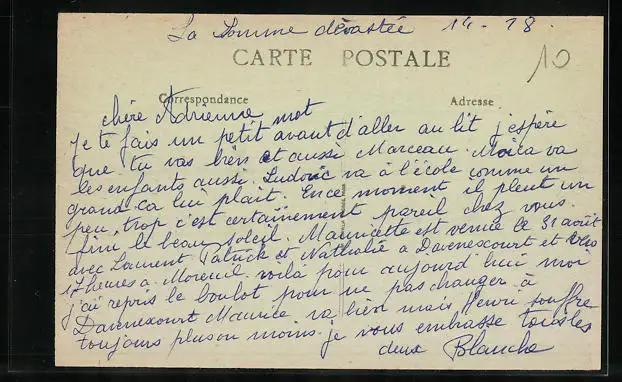 La Somme dévastée 14-18.
CARTE POSTALE
10
Correspondance
Adresse
chère Adrienne
je te fais un petit mot avant d'aller au lit j'espère
que tu vas bien et aussi Marceau. Moi ca va
les enfants aussi. Ludovic va à l'école comme un
grand ca lui plait. En ce moment il pleut un
peu trop c'est certainement pareil chez vous.
fini le beau soleil. Mauricette est venue le 31 août
avec Laurent Patrick et Nathalie a Davenescourt et vers
17 heures a Moreuil. voilà pour aujourd'hui moi
j'ai repris le boulot pour ne pas changer à
Davenescourt Maurice va bien mais Henri souffre
toujours plus ou moins. je vous embrasse tous les
deux Blanche